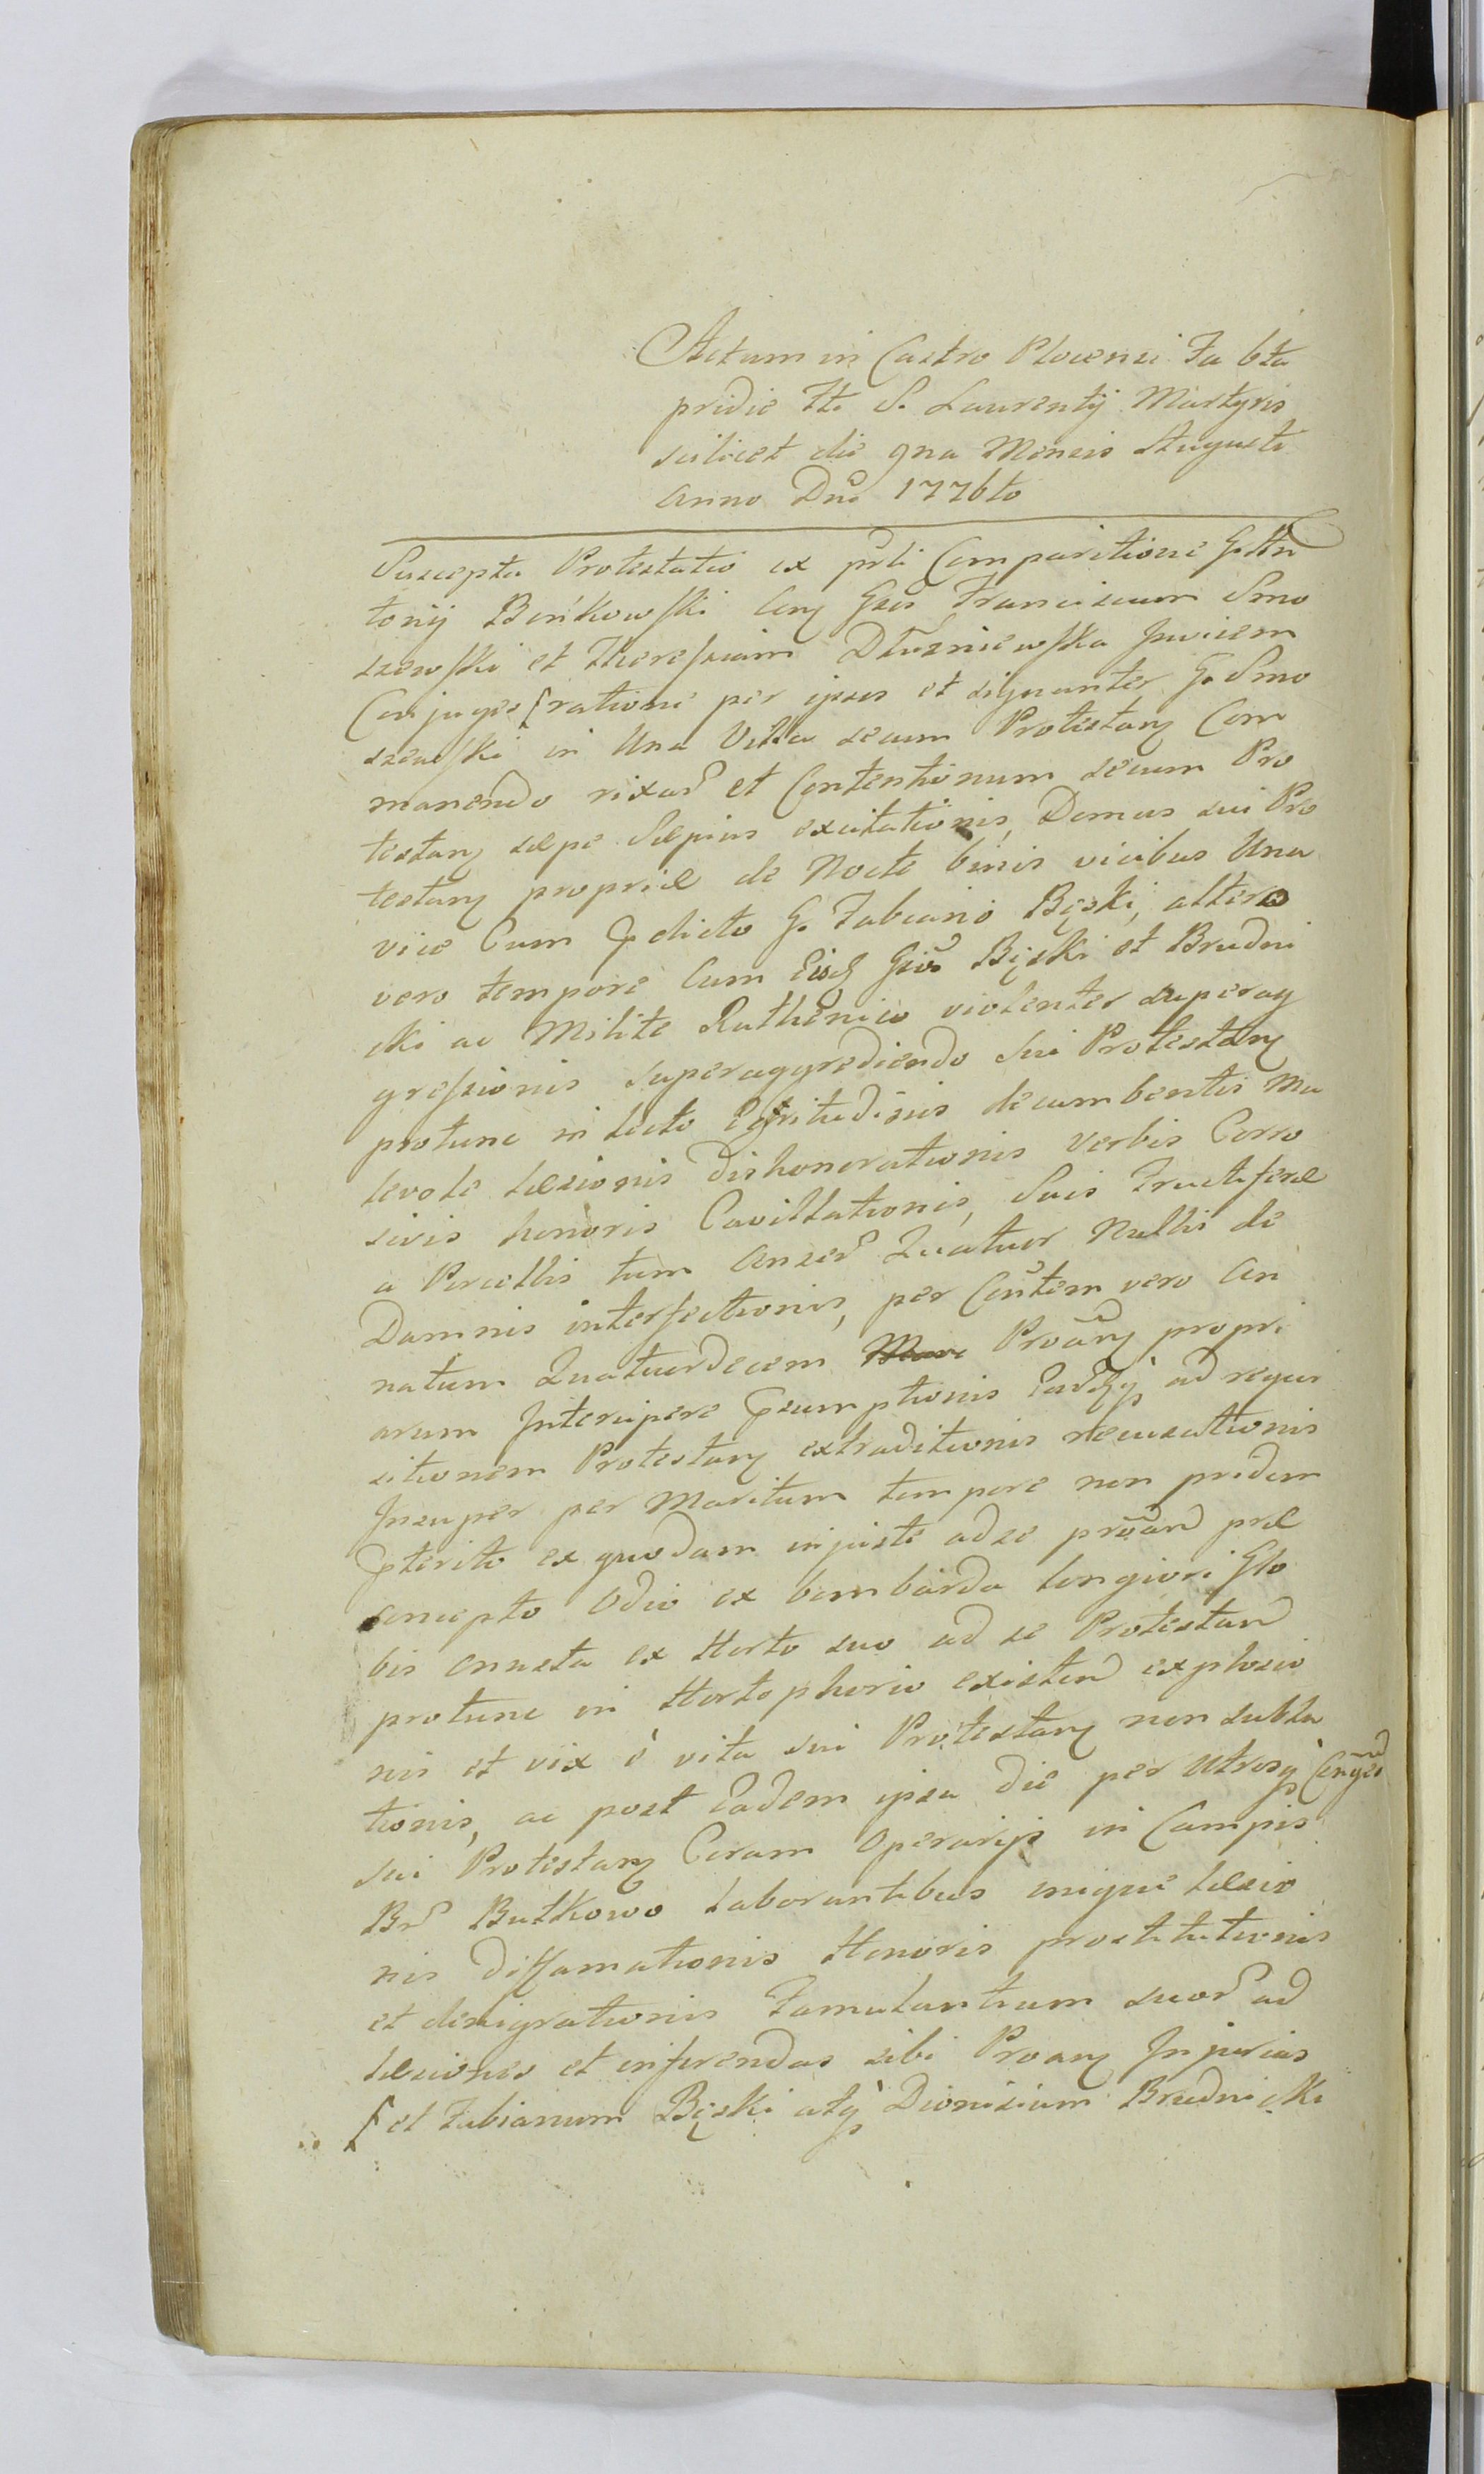 Actum in Castro Plocensi Fa 6ta
pridie ft. S. Laurentij Martyris
scilicet die 9na Mensis Augusti
Anno Dni 1776to
Suscepta Protestatio ex prsli Comparitione G. An
tonij Bońkowski Cons Gsos Franciscum Smo
szewski et Theressiam Dłuzniewska Invicem
Conjuges ſ ratione per ipsos et signanter G. Smo
szewski in Una Villa secum Protestang Com
manendo rixar et Contentionum secum Pro
testang sæpe Sæpius excitationis, Domus sui Pro
testang propriæ de Nocte binis vicibus Una
vice Cum dicto G. Fabiano Bęski, altero
vero tempore Cum Gsis Bęski et Brudni
cki ac Milite Ruthenico violenter superag
gressionis superaggrediendo sui Protestang
protunc in lecto Egritudinis decumbentis Ma
levole læsionis dishonorationis verbis Corro
sivis honoris Cavillationis, Suis Fructiferæ
a Porcellis tum Anser Quatuor Nullis de
Damnis interfectionis, per Contem vero An
natum Quatuordecem Proang propri
arum Intercipere sumptionis ad requi
sitionem Protestang extraditionis recusationis
Insuper per Maritum tempore non pridem
pterito ex quodam injuste ad se proand præ
concepto Odio ex bombarda longiori Glo
bis onusta ex Horto suo ad se Protestand
protunc in Hortophorio existend explosio
nis et vix è vita sui Protestang non subla
tionis, ac post Eadem ipsa die per Utrosq Congsd
sui Protestang Coram Operarijs in Campis
Br Butkowo laborantibus inique læsio
nis diffamationis Honoris prostitutionis
et denigrationis Famulantium suor ad
læsiones et inferendas sibi Proang Injurias
ſ et Fabianum Bęski atq Dionisium Brudnicki